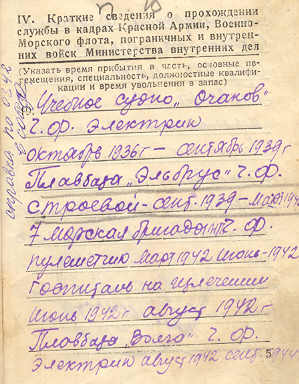 IV. Краткие сведения о прохождении
службы в кадрах Красной Армии, Военно-
Морского флота, пограничных и внутрен-
них войск Министерства внутренних дел
(Указать время прибытия в часть, основные пе-
ремещения, специальность, должностные квалифи-
кации и время увольнения в запас)
Учебное судно „Очаков"
Ч. Ф. Электрик
октябрь 1936 г – сентябрь 1939 г
Плавбаза „Эльбрус" Ч. Ф.
строевой – сент. 1939 – март 1942
7 морская бригада Ч. Ф.
пулеметчик март 1942 июнь – 1942
Госпиталь на излечении
июнь 1942 г август 1942 г
Плавбаза „Волга" Ч. Ф.
Электрик август 1942 сент.
5